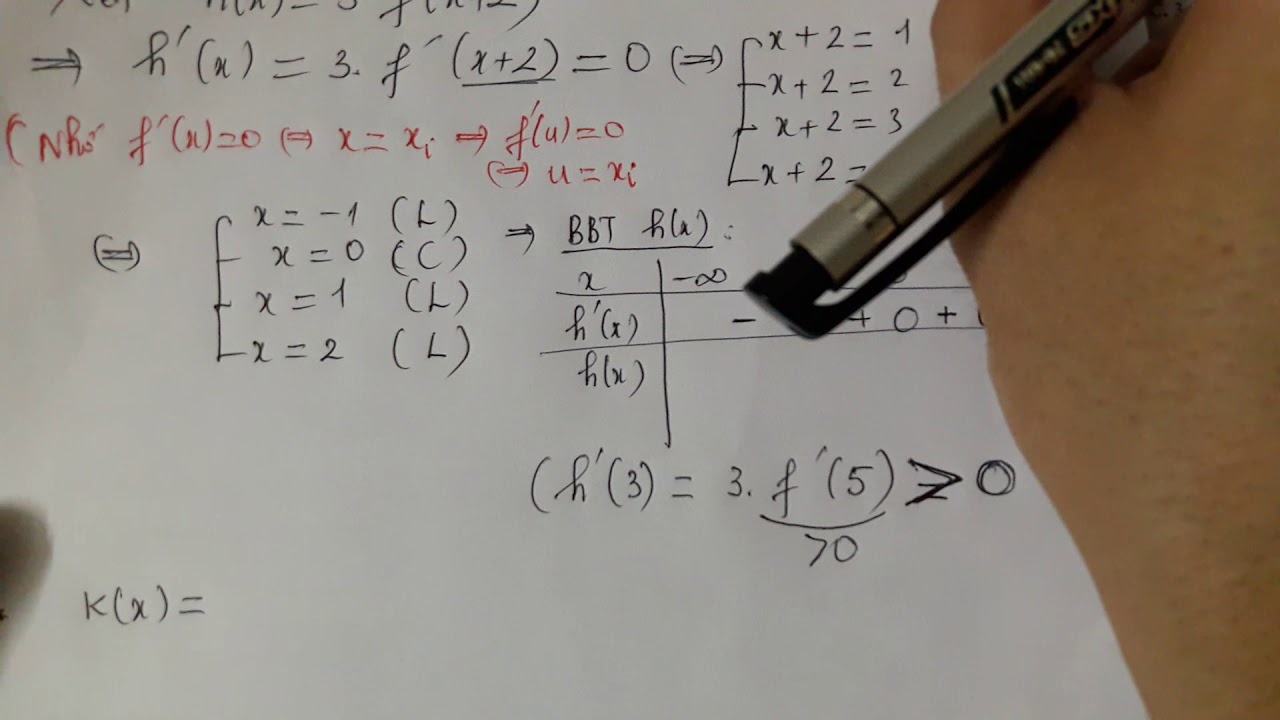 h(x) = 3 f(x+2)
⇒ h'(x) = 3. f'(x+2) = 0 ⇔ x + 2 = 1
x + 2 = 2
x + 2 = 3
x + 2 =
(Nhớ f'(x)=0 ⇔ x = xᵢ ⇒ f'(u)=0
⇔ u = xᵢ
⇔ x = -1 (L)
x = 0 (C)
x = 1 (L)
x = 2 (L)
⇒ BBT h(x) :
x -∞
h'(x) - + 0 +
h(x)
(h'(3) = 3. f'(5) > 0
>0
K(x) =